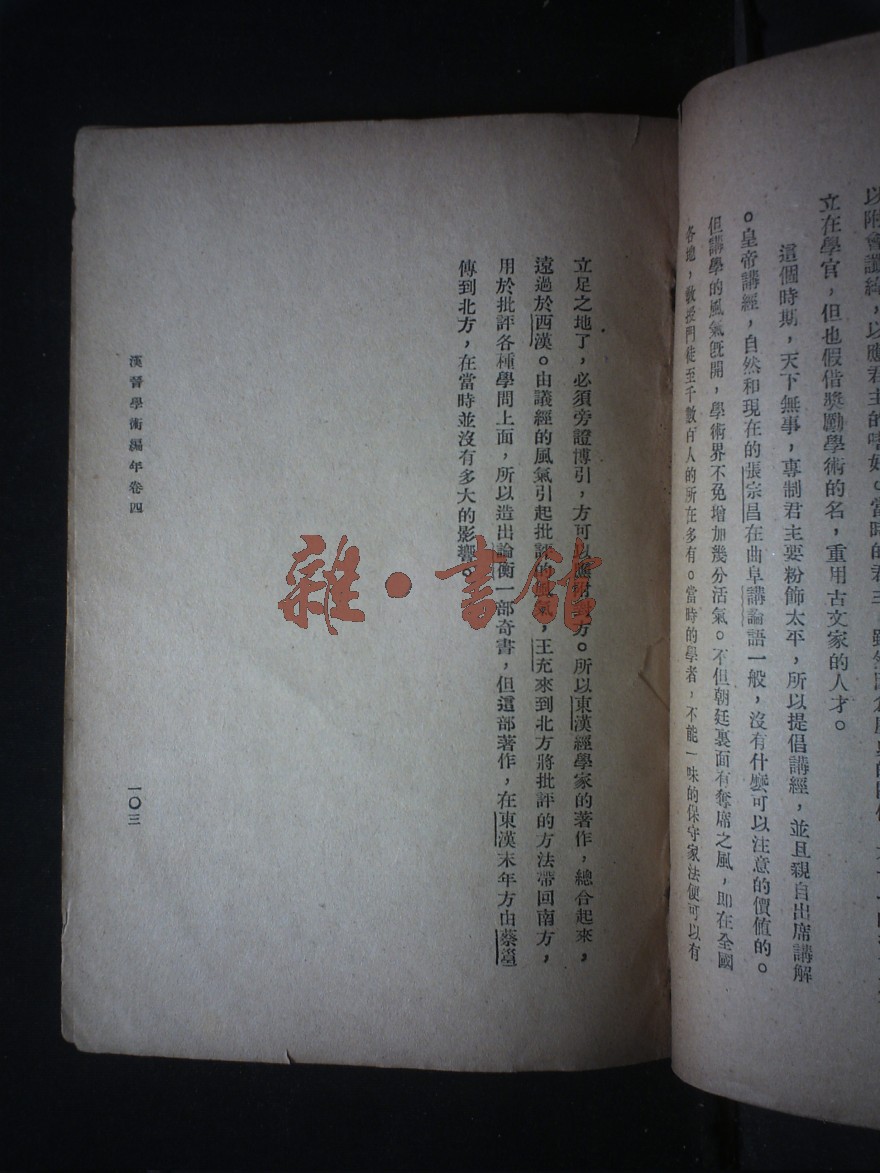 以附會讖緯，以應君主的嗜好。當時的君主，雖
立在學官，但也假借獎勵學術的名，重用古文家的人才。
這個時期，天下無事，專制君主要粉飾太平，所以提倡講經，並且親自出席講解
。皇帝講經，自然和現在的張宗昌在曲阜講論語一般，沒有什麼可以注意的價值的。
但講學的風氣既開，學術界不免增加幾分活氣。不但朝廷裏面有奪席之風，即在全國
各地，教授門徒至千數百人的所在多有。當時的學者，不能一味的保守家法便可以有
立足之地了，必須旁證博引，方可以應付多方。所以東漢經學家的著作，總合起來，
遠過於西漢。由議經的風氣引起批評的風氣，王充來到北方將批評的方法帶回南方，
用於批評各種學問上面，所以造出論衡一部奇書，但這部著作，在東漢末年方由蔡邕
傳到北方，在當時並沒有多大的影響。
漢晉學術編年卷四
一〇三
雜·書館